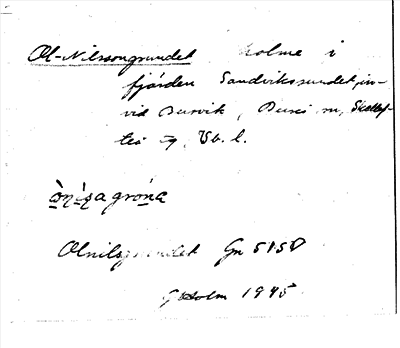 Ol-Nilssongrundet holme i
fjärden Sandvikssundet, in-
vid Burvik, Bureå sn, Skellef-
teå tg, Vb. l.
Olnilsgrundet Gn 5150
G Holm 1945